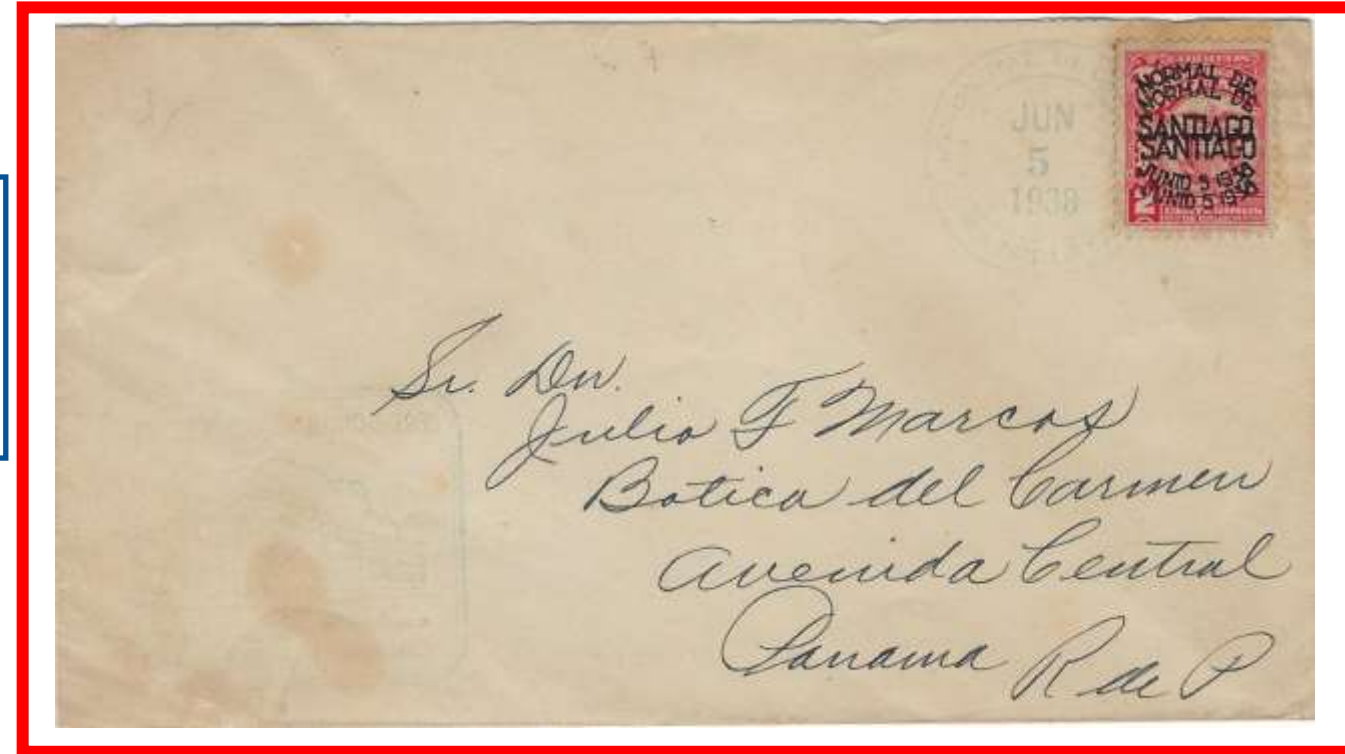 JUN
5
1938
NORMAL DE
NORMAL DE
SANTIAGO
SANTIAGO
JUNIO 5 1938
JUNIO 5 1938
2
Sr. Dn.
Julio F Marcos
Botica del Carmen
Avenida Central
Panama R de P